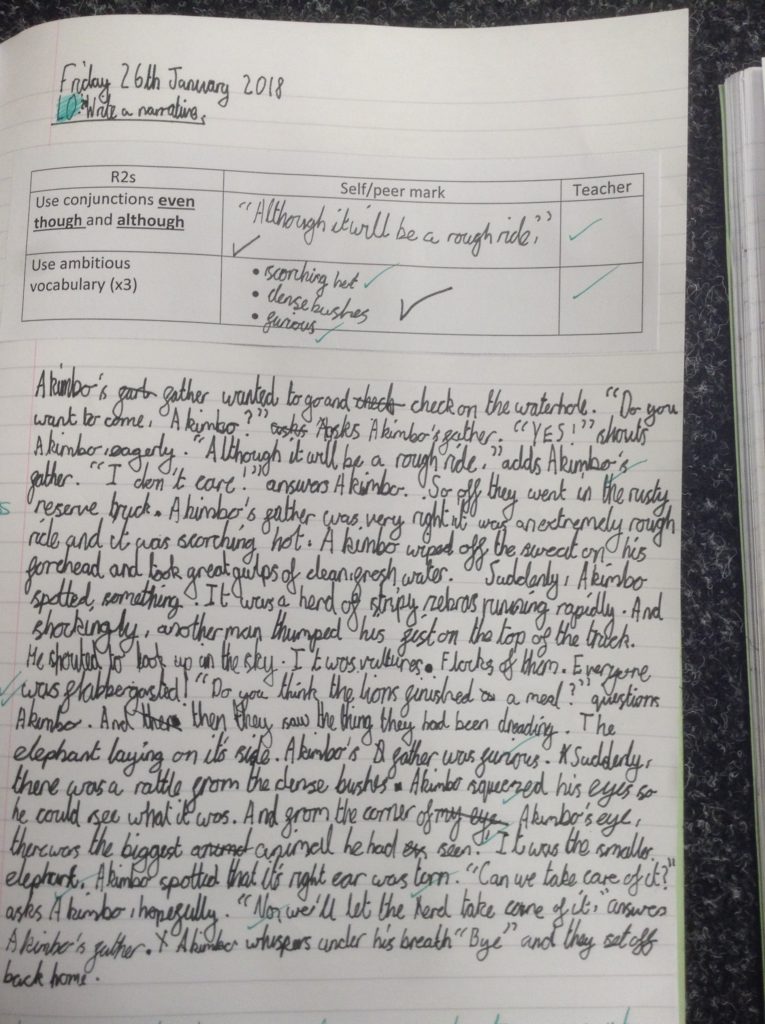 Friday 26th January 2018
LO: Write a narrative.
R2s Self/peer mark Teacher
Use conjunctions even though and although
"Although it will be a rough ride,"
Use ambitious vocabulary (x3)
• scorching hot
• dense bushes
• furious
Akimbo's father wanted to go and check check on the waterhole. "Do you
want to come, Akimbo?" asks Asks Akimbo's father. "YES!" shouts
Akimbo, eagerly. "Although it will be a rough ride," adds Akimbo's
father. "I don't care!" answers Akimbo. So off they went in the rusty
reserve truck. Akimbo's father was very right it was an extremely rough
ride and it was scorching hot. Akimbo wiped off the sweat on his
forehead and took great gulps of clean, fresh water. Suddenly, Akimbo
spotted something. It was a herd of stripy zebras running rapidly. And
shockingly, another man thumped his fist on the top of the truck.
He shouted to look up in the sky. It was vultures. Flocks of them. Everyone
was flabbergasted! "Do you think the lions finished a meal?" questions
Akimbo. And there then they saw the thing they had been dreading. The
elephant laying on it's side. Akimbo's father was furious. *Suddenly,
there was a rattle from the dense bushes. Akimbo squeezed his eyes so
he could see what it was. And from the corner of my eye, Akimbo's eye,
there was the biggest animall he had seen. It was the smaller
elephant. Akimbo spotted that it's right ear was torn. "Can we take care of it?"
asks Akimbo, hopefully. "No, we'll let the herd take care of it," answers
Akimbo's father. X Akimbo whispers under his breath "Bye" and they set off
back home.